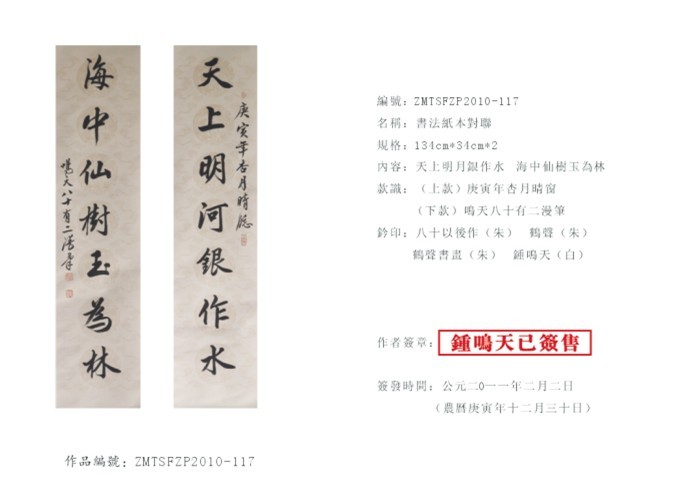 天上明河銀作水
庚寅年杏月晴窓
海中仙樹玉為林
鳴天八十有二漫筆
編號：ZMTSFZP2010-117
名稱：書法紙本對聯
規格：134cm*34cm*2
內容：天上明月銀作水 海中仙樹玉為林
款識：（上款）庚寅年杏月晴窗
（下款）鳴天八十有二漫筆
鈐印：八十以後作（朱） 鶴聲（朱）
鶴聲書畫（朱） 鍾鳴天（白）
作者簽章：鍾鳴天已簽售
簽發時間：公元二0一一年二月二日
（農曆庚寅年十二月三十日）
作品編號：ZMTSFZP2010-117